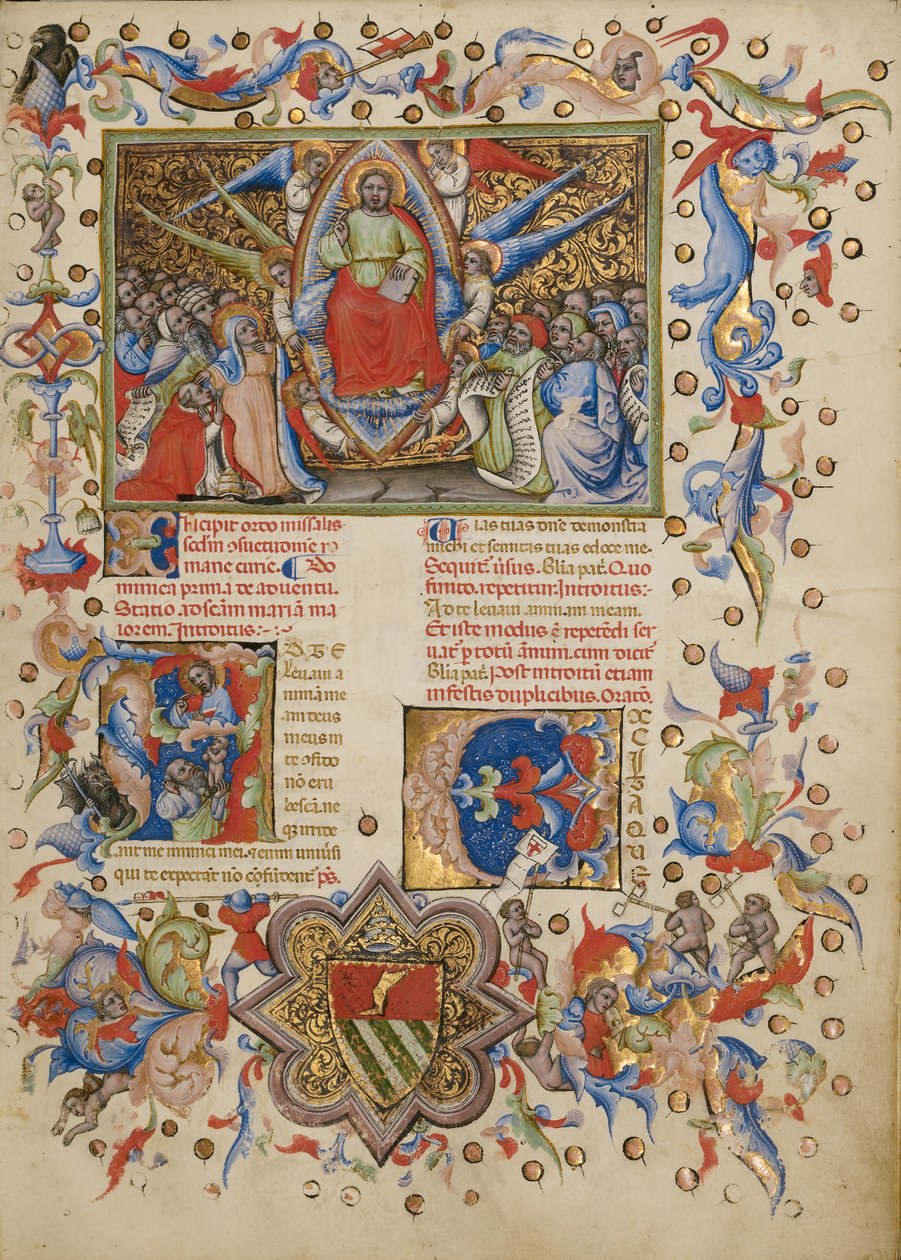 Incipit ordo missalis
scdm ɔsuetudinē ro
mane curie. Do
minica prima de aduentu.
Statio ad scām mariā ma
iorem. Introitus:-
AD TE
leuaui a
nimā me
am deus
meus in
te ɔfido
nō eru
bescā. ne
qȝ irride
ant me inimici mei. ⁊ enim uniūsi
qui te expectāt nō cōfūdent̄. p̄s.
Uias tuas dn̄e demonstra
michi et semitas tuas edoce me.
Sequit̄ v̄sus. Glīa pat̄. Quo
finito. repetitur: Introitus.
Ad te leuaui animam meam.
Et iste modus ē repetēdi ser
uat̄ p totū annum. cum dicit̄
Glīa pat̄. Post introitū etiam
in festis duplicibus. Oratō.
EXCITA QUS